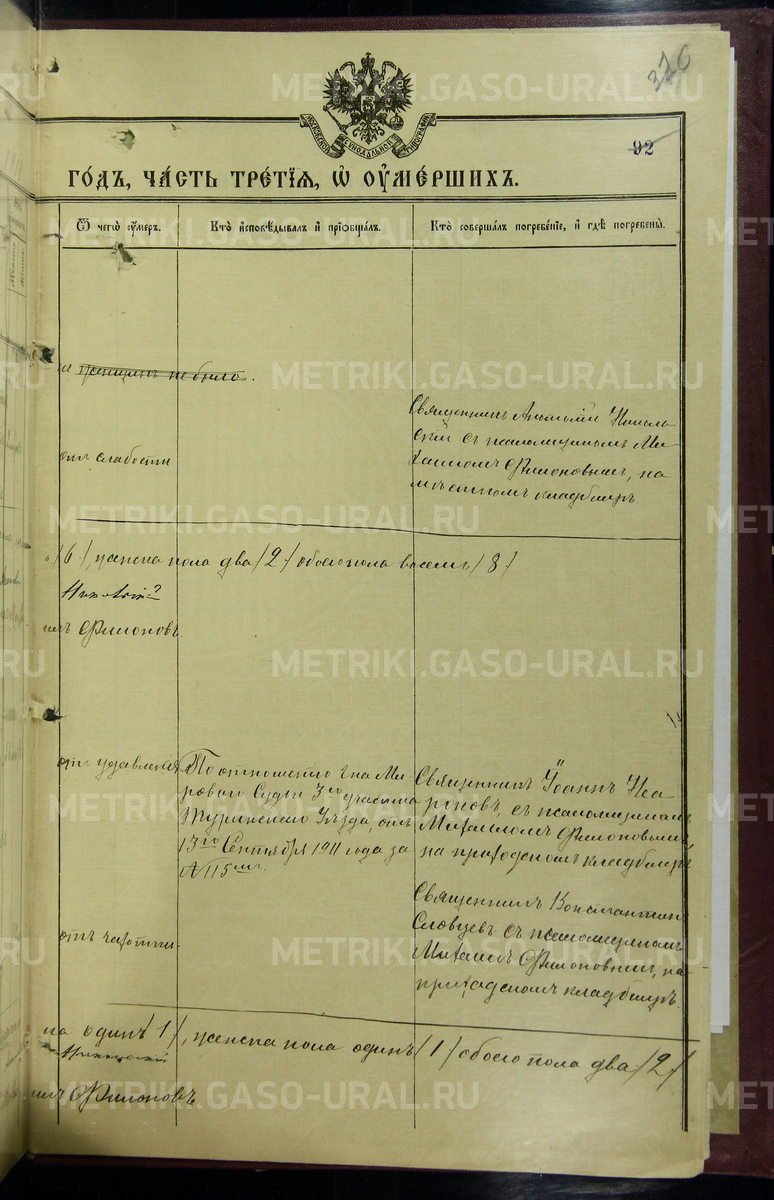 376
92
МОСКОВСКОЙ СѴНОДАЛЬНОЙ ТИПОГРАФІИ
ГО́ДЪ, ЧА́СТЬ ТРЕ́ТІѦ, Ѡ ОУ҆МЕ́РШИХЪ.
Ѿ чегѡ̀ ᲂу҆́меръ.
Кто̀ и҆сповѣ́дывалъ и҆ прїѡбща́лъ.
Кто̀ соверша́лъ погребе́нїе, и҆ гдѣ̀ погребены̀.
женщинъ не было.
отъ слабости
Священникъ Анатолій Николь
скій съ псаломщикомъ Ми
хаиломъ Филоновымъ, на
мѣстномъ кладбищѣ.
/6/, женска пола два /2/ обоего пола восемь /8/
Филоновъ.
отъ удавленія
По отношенію г-на Ми
рового Судьи 3го участка
Туринскаго Уѣзда, отъ
13го Сентября 1911 года за
№ 115мъ.
Священникъ Іоаннъ
съ псаломщикомъ
Михаиломъ Филоновымъ,
на приходскомъ кладбищѣ
отъ чахотки.
Священникъ Константинъ
Словцевъ съ псаломщикомъ
Михаил Филоновымъ, на
приходскомъ кладбищѣ.
на одинъ /1/, женска пола одинъ /1/ обоего пола два /2/
Филоновъ
METRIKI.GASO-URAL.RU